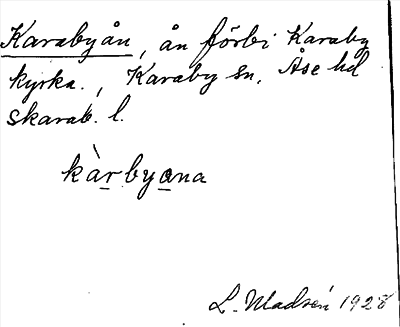 Karabyån, ån förbi Karaby
kyrka., Karaby sn. Åse hd
skarab. l.
kàrbyana
L. Madsén 1928